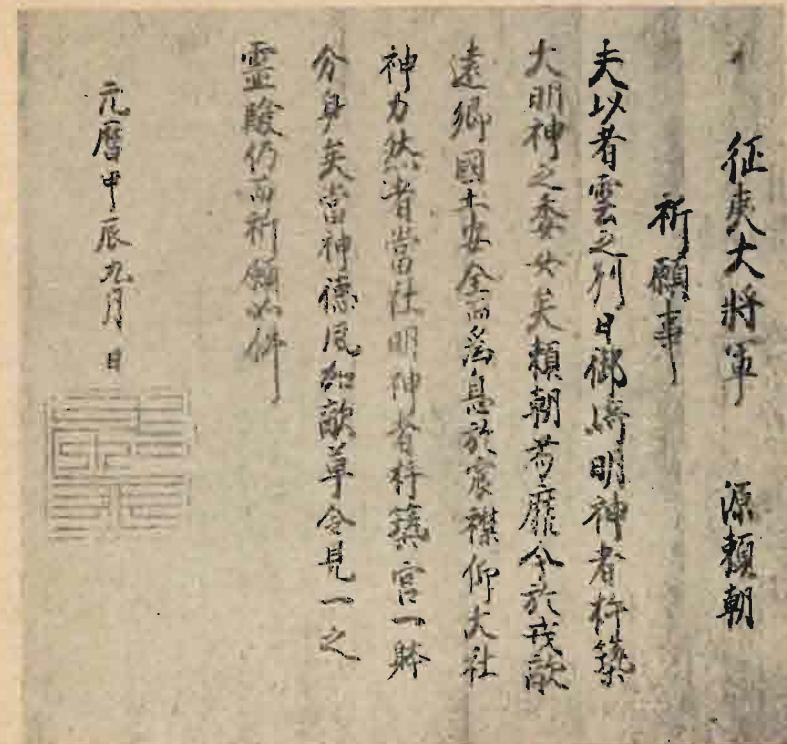 征夷大将軍　源頼朝
祈願事
夫以者雲之列日御崎明神者杵築
大明神之委女矣頼朝苟靡令於戎敵
遠郷国土安全而為息於宸襟仰大社
神力然者當社明神者杵築宮一躰
分身矣當神徳風加敵草令見一之
霊験仍而祈願如件
元暦甲辰九月　日